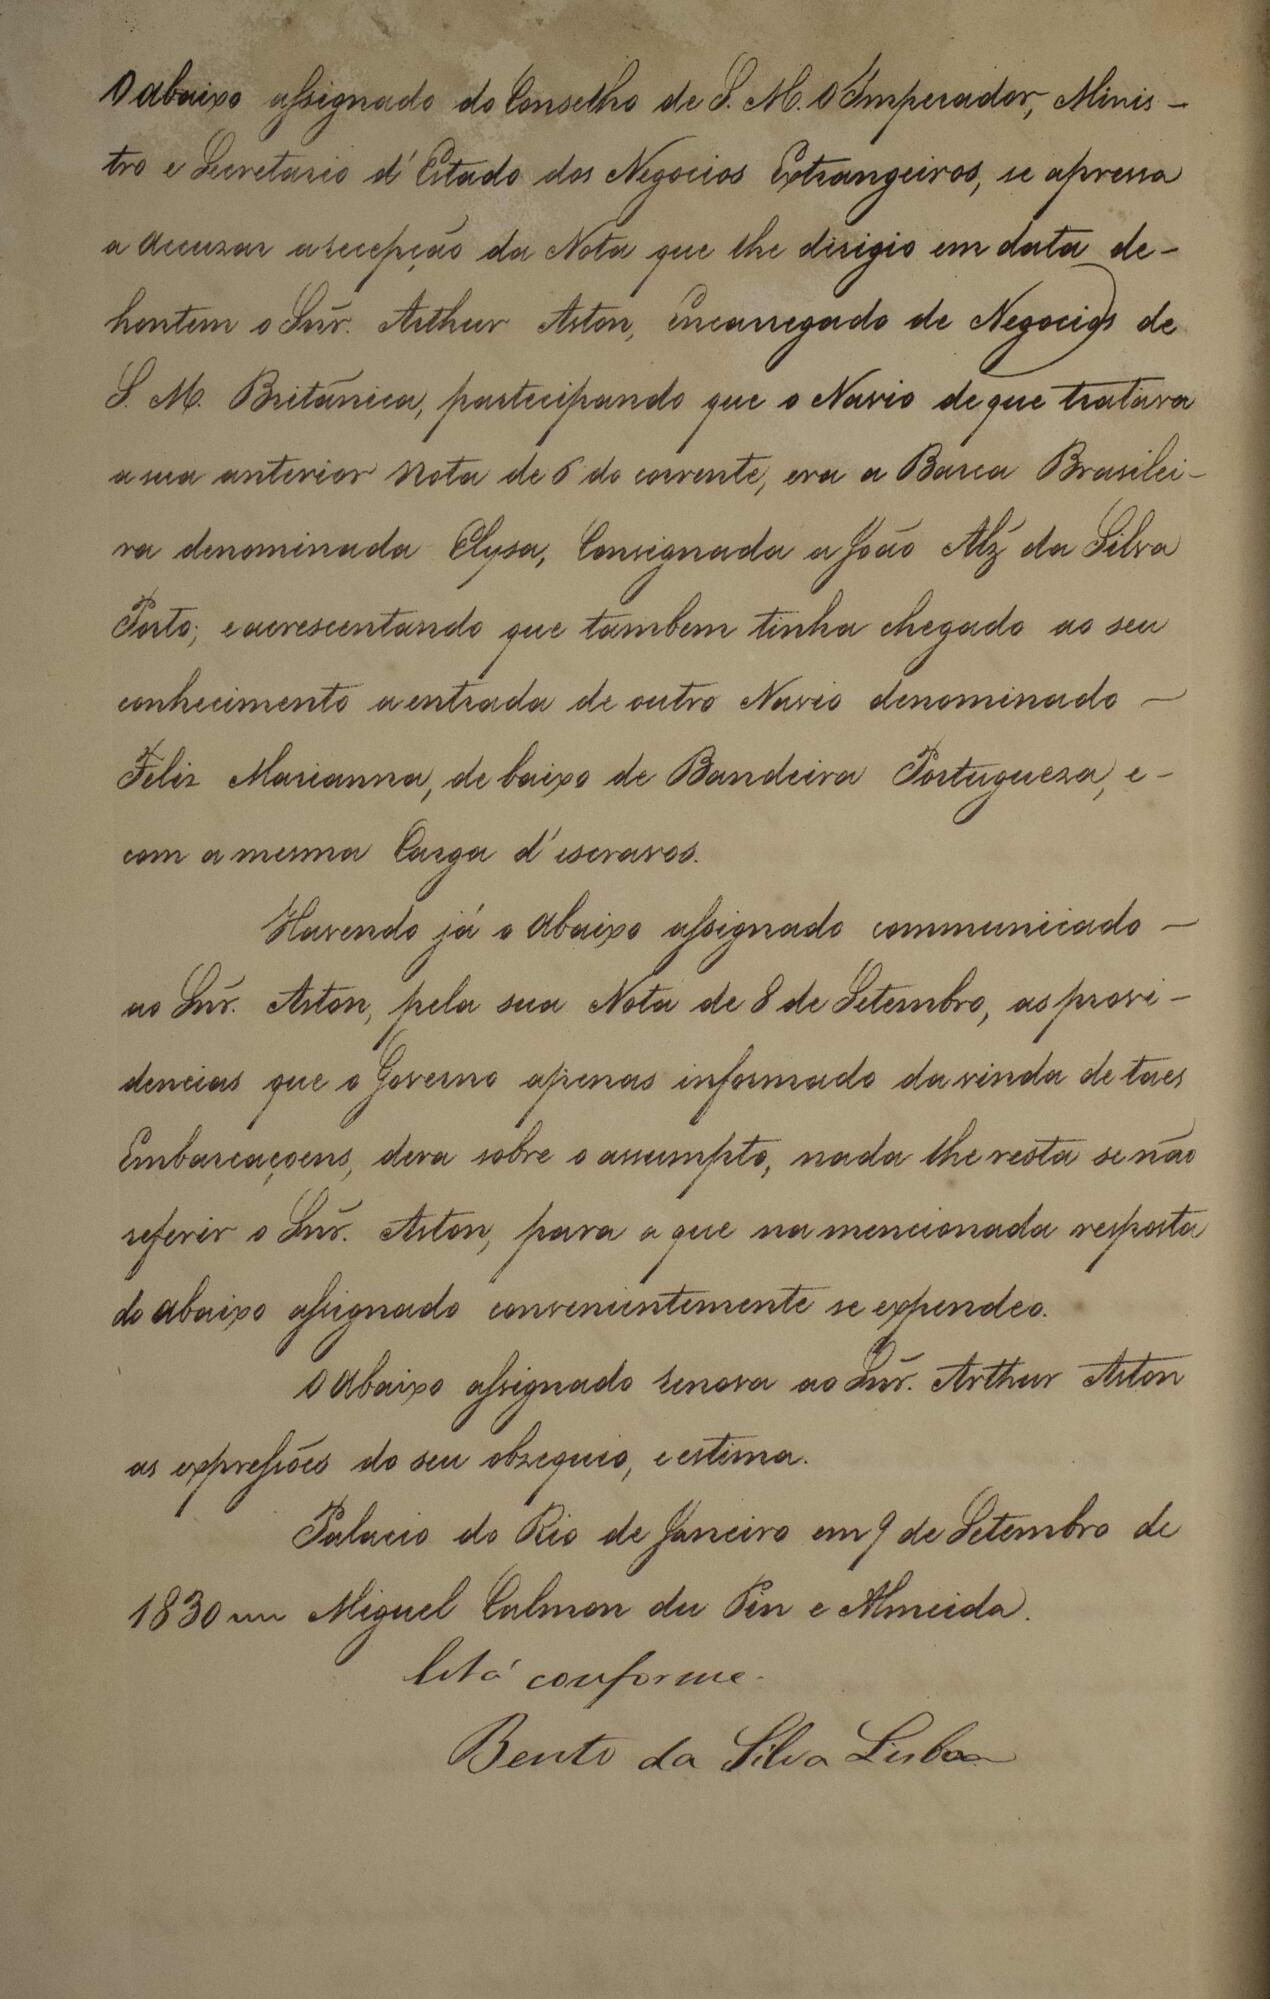 O abaixo assignado do Conselho de S. M. O Imperador, Minis-
tro e Secretario d'Estado dos Negocios Extrangeiros, se apressa
a accuzar a recepção da Nota que lhe dirigio em data de-
hontem o Snr. Arthur Aston, Encarregado de Negocios de
S. M. Britânica, partecipando que o Navio de que tratava
a sua anterior Nota de 6 do corrente, era a Barca Brasilei-
ra denominada Elysa, Consignada a João Alz' da Silva
Porto; e acrescentando que tambem tinha chegado ao seu
conhecimento a entrada de outro Navio denominado -
Feliz Marianna, de baixo de Bandeira Portugueza, e-
com a mesma Carga d'escravos.
Havendo já o abaixo assignado communicado -
ao Snr. Aston, pela sua Nota de 8 de Setembro, as provi-
dencias que o Governo apenas informado da vinda de taes
Embarcaçoens, dera sobre o assumpto, nada lhe resta se não
referir o Snr. Aston, para o que na mencionada resposta
do abaixo assignado convenientemente se expendeo.
O abaixo assignado renova ao Snr. Arthur Aston
as expressões do seu obzequio, e estima.
Palacio do Rio de Janeiro em 9 de Setembro de
1830 Miguel Calmon du Pin e Almeida.
Está conforme.
Bento da Silva Lisboa